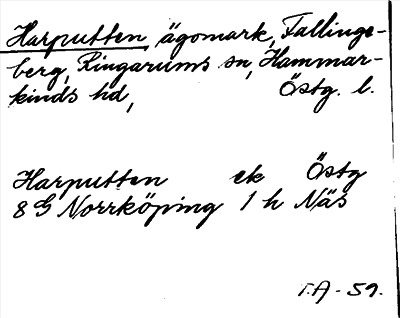 Harputten, ägomark, Fallinge-
berg, Ringarums sn, Hammar-
kinds hd, Östg. l.
Harputten ek Östg
8 G Norrköping 1 h Näs
T.A - 59.